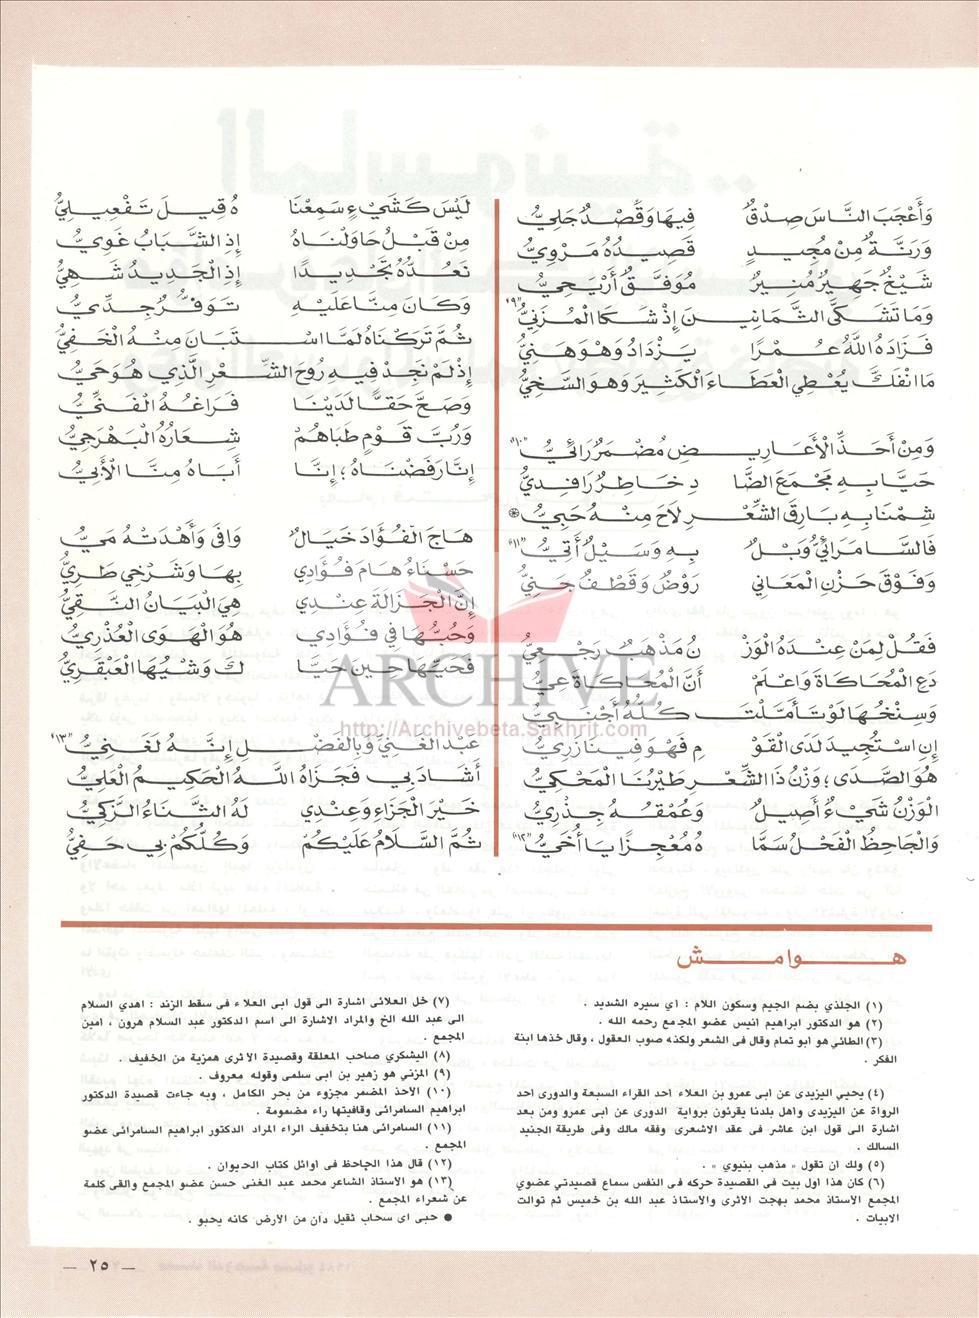 وَأَعْجَبَ النَّاسَ صِدْقٌ فِيهَا وَقَصْدٌ جَلِيُّ
وَرَنَّةٌ مِنْ مُجِيدٍ قَصِيدُهُ مَرْوِيُّ
شَيْخٌ جَهِيرٌ مُنِيرٌ مُوَفَّقٌ أَرْيَحِيُّ
وَمَا تَشَكَّى الثَّمَانِينَ إِذْ شَكَا الْمُزَنِيُّ «٩»
فَزَادَهُ اللهُ عُمْرًا يَزْدَادُ وَهْوَ هَنِيُّ
مَا انْفَكَّ يُعْطِي الْعَطَاءَ الْكَثِيرَ وَهْوَ السَّخِيُّ
وَمِنْ أَحَذِّ الْأَعَارِيضِ مُضْمَرٌ رَائِيُّ «١٠»
حَيَّا بِهِ مَجْمَعَ الضَّادِ خَاطِرٌ رَافِدِيُّ
شِمْنَا بِهِ بَارِقَ الشِّعْرِ لَاحَ مِنْهُ حَبِيُّ ⊛
فَالسَّامَرَائِيُّ وَبْلٌ بِهِ وَسَيْلٌ أَتِيُّ «١١»
وَفَوْقَ حَزْنِ الْمَعَانِي رَوْضٌ وَقَطْفٌ جَنِيُّ
فَقُلْ لِمَنْ عِنْدَهُ الْوَزْنُ مَذْهَبٌ رَجْعِيُّ
دَعِ الْمُحَاكَاةَ وَاعْلَمْ أَنَّ الْمُحَاكَاةَ عِيُّ
وَسِنْخُهَا لَوْ تَأَمَّلْتَ كُلُّهُ أَجْنَبِيُّ
إِنِ اسْتُجِيدَ لَدَى الْقَوْمِ فَهْوَ فِينَا زَرِيُّ
هُوَ الصَّدَى؛ وَزْنُ ذَا الشِّعْرِ طَيْرُنَا الْمَحْكِيُّ
الْوَزْنُ شَيْءٌ أَصِيلٌ وَعُمْقُهُ جِذْرِيُّ
وَالْجَاحِظُ الْفَحْلُ سَمَّاهُ مُعْجِزًا يَا أُخَيُّ «١٢»
لَيْسَ كَشَيْءٍ سَمِعْنَاهُ قِيلَ تَفْعِيلِيُّ
مِنْ قَبْلُ حَاوَلْنَاهُ إِذِ الشَّبَابُ غَوِيُّ
نَعُدُّهُ تَجْدِيدًا إِذِ الْجَدِيدُ شَهِيُّ
وَكَانَ مِنَّا عَلَيْهِ تَوَفُّرٌ جِدِّيُّ
ثُمَّ تَرَكْنَاهُ لَمَّا اسْتَبَانَ مِنْهُ الْخَفِيُّ
إِذْ لَمْ نَجِدْ فِيهِ رُوحَ الشِّعْرِ الَّذِي هُوَ حَيُّ
وَصَحَّ حَقًّا لَدَيْنَا فَرَاغُهُ الْفَنِّيُّ
وَرُبَّ قَوْمٍ طَبَاهُمْ شِعَارُهُ الْبَهْرَجِيُّ
إِنَّا رَفَضْنَاهُ؛ إِنَّا أَبَاهُ مِنَّا الْأَبِيُّ
هَاجَ الْفُؤَادَ خَيَالٌ وَافَى وَأَهْدَتْهُ مَيُّ
حَسْنَاءُ هَامَ فُؤَادِي بِهَا وَشَرْخِي طَرِيُّ
إِنَّ الْجَزَالَةَ عِنْدِي هِيَ الْبَيَانُ النَّقِيُّ
وَحُبُّهَا فِي فُؤَادِي هُوَ الْهَوَى الْعُذْرِيُّ
فَحَيِّهَا حِينَ حَيَّا لَكَ وَشْيُهَا الْعَبْقَرِيُّ
عَبْدُ الْغَنِيِّ وَبِالْفَضْلِ إِنَّهُ لَغَنِيُّ «١٣»
أَشَادَ بِي فَجَزَاهُ اللهُ الْحَكِيمُ الْعَلِيُّ
خَيْرَ الْجَزَاءِ وَعِنْدِي لَهُ الثَّنَاءُ الزَّكِيُّ
ثُمَّ السَّلَامُ عَلَيْكُمْ وَكُلُّكُمْ بِي حَفِيُّ
ARCHIVE
http://Archivebeta.Sakhrit.com
هـوامـش
(١) الجلذي بضم الجيم وسكون اللام : أي سيره الشديد .
(٢) هو الدكتور ابراهيم انيس عضو المجامع رحمه الله .
(٣) الطائي هو ابو تمام وقال فى الشعر ولكنه صوب العقول ، وقال خذها ابنة
الفكر .
(٤) يحيى اليزيدى عن ابى عمرو بن العلاء احد القراء السبعة والدورى احد
الرواة عن اليزيدى واهل بلدنا يقرئون برواية الدورى عن ابى عمرو ومن بعد
اشارة الى قول ابن عاشر فى عقد الاشعرى وفقه مالك وفى طريقة الجنيد
السالك .
(٥) ولك ان تقول « مذهب بنيوي » .
(٦) كان هذا اول بيت فى القصيدة حركه فى النفس سماع قصيدتي عضوي
المجمع الاستاذ محمد بهجت الاثرى والاستاذ عبد الله بن خميس ثم توالت
الابيات .
(٧) خل العلائى اشارة الى قول ابى العلاء فى سقط الزند : اهدي السلام
الى عبد الله الخ والمراد الاشارة الى اسم الدكتور عبد السلام هرون ، امين
المجمع .
(٨) اليشكري صاحب المعلقة وقصيدة الاثرى همزية من الخفيف .
(٩) المزني هو زهير بن ابى سلمى وقوله معروف .
(١٠) الاحذ المضمر مجزوء من بحر الكامل ، وبه جاءت قصيدة الدكتور
ابراهيم السامرائى وقافيتها راء مضمومة .
(١١) السامرائى هنا بتخفيف الراء المراد الدكتور ابراهيم السامرائى عضو
المجمع .
(١٢) قال هذا الجاحظ فى اوائل كتاب الحيوان .
(١٣) هو الاستاذ الشاعر محمد عبد الغنى حسن عضو المجمع والقى كلمة
عن شعراء المجمع .
● حبى اى سحاب ثقيل دان من الارض كانه يحبو .
— ٢٥ —